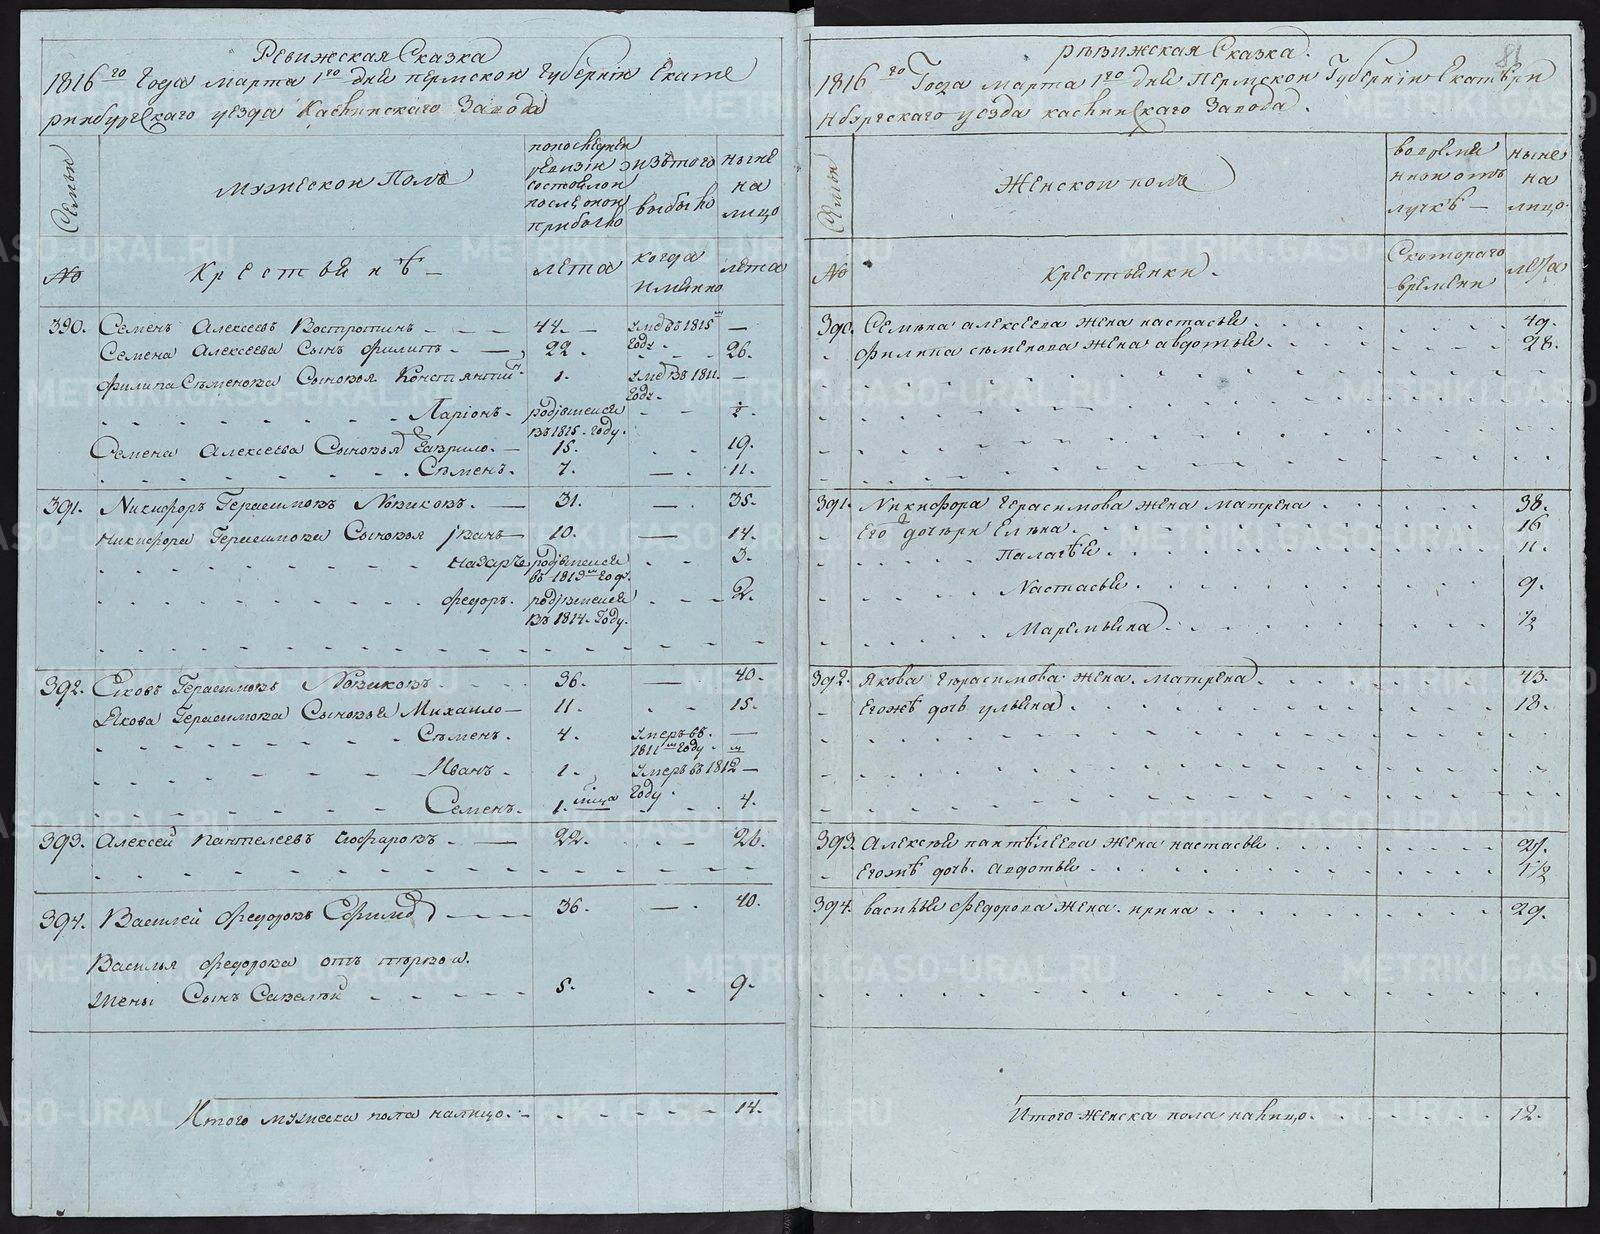 Ревижская Сказка
1816го Года марта 1го дня пермской Губернiи Екате
ринбургскаго уезда Каслинскаго Завода
Семьи
Мужеской Полъ
попоследней ревизiи состояло и после оной прибыло
изътого выбыло
ныне на лицо
№
Крестьянъ
лета
когда имянно
лета
390. Семенъ Алексеевъ Востротинъ - 44. - умре въ 1815м Году -
Семена Алексеева Сынъ Филиппъ - 22 - 26.
Филипа Семенова Сыновья Констянтинъ 1. умре въ 1811. Году -
Ларiонъ - родившейся въ 1815 году. - - ½.
Семена Алексеева Сыновья Гаврило - 15. - - 19.
Семенъ. 7. - 11.
391. Никифоръ Герасимовъ Новиковъ. - 31. - 35.
Никифора Герасимова Сыновья Iванъ 10. - 14.
Назаръ родившейся въ 1813м году. - - 3.
Федоръ. родившейся въ 1814. Году. - - 2.
392. Яковъ Герасимовъ Новиковъ - 36. - 40.
Якова Герасимова Сыновья Михаило 11. - 15.
Семенъ. 4. умеръ въ 1811м Году -
Иванъ - 1. умеръ въ 1812 Году -
Семенъ. 1. - 4.
393. Алексей Пантелеевъ - 22. - 26.
394. Василей Федоровъ - 36. - 40.
Василья Федорова отъ первой
жены Сынъ Савелей - 5. - - 9.
Итого мужеска пола налицо. - 14.
81
ревижская Сказка.
1816го Года марта 1го дня Пермской Губернiи Екатери
нбургскаго уезда каслинскаго Завода.
Семьи
Женской полъ
вовремянной отлучкѣ
ныне на лицо.
№
Крестьянки.
Скотораго времени
лета
390. Семена алексеева жена настасья. 49.
Филипа семенова жена авдотья. 28.
391. Никифора Герасимова жена матрена 38.
Его дочери Елена. 16
Палагѣя. 11.
Настасья 9.
Маремьяна ½
392. Якова Герасимова жена. матрена 43.
Егожѣ дочь ульяна 18.
393. Алексѣя пантѣлѣева жена настасья 27.
Егожѣ дочь. Авдотья 1½
394. василья Федорова жена. ирина 29.
Итого женска пола налицо. 12.